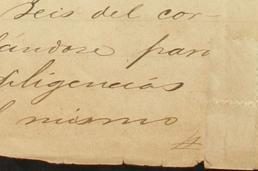 Seis del cor-
ándose para
diligencias
l mismo